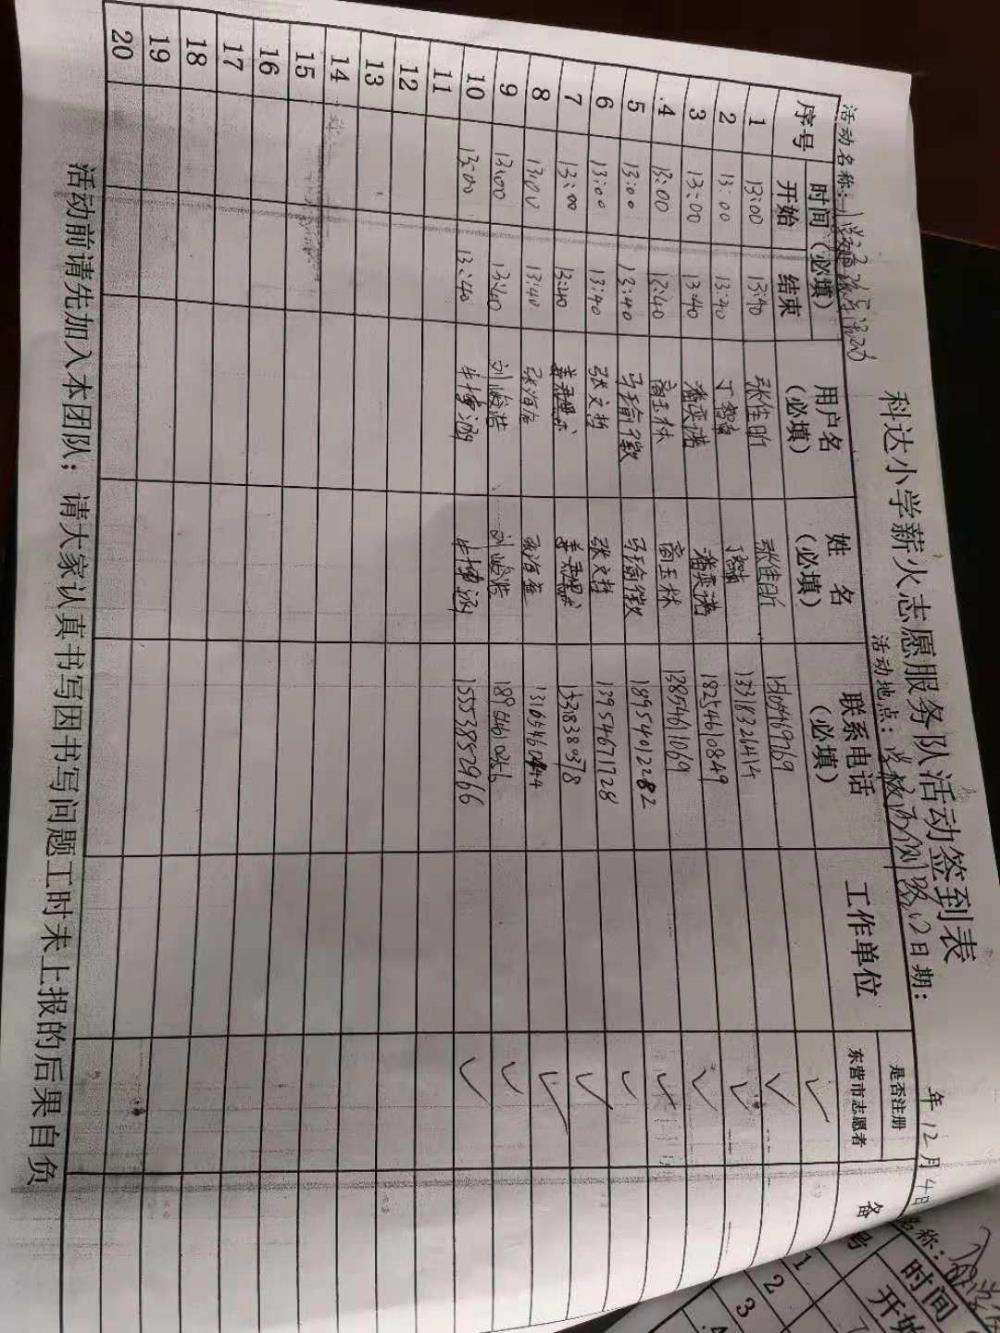 科达小学薪火志愿服务队活动签到表
活动名称： 活动地点：学校 日期： 年12月4日
序号 时间（必填） 用户名（必填） 姓名（必填） 联系电话（必填） 工作单位 是否注册东营市志愿者 备
开始 结束
1 13:00 13:40 张佳昕 张佳昕 ✓
2 13:00 13:40 丁 13318326414 ✓
3 13:00 13:40 潘奕诺 潘奕诺 18254610849 ✓
4 13:00 13:40 商玉林 商玉林 13854611069 ✓
5 13:00 13:40 马瑜徽 马瑜徽 18954402282 ✓
6 13:00 13:40 张文哲 张文哲 13954671728 ✓
7 13:00 13:40 15318389378 ✓
8 13:00 13:40 ✓
9 13:00 13:40 刘峻浩 刘峻浩 ✓
10 13:00 13:40 牛博涵 牛博涵 15553852966 ✓
11
12
13
14
15
16
17
18
19
20
活动前请先加入本团队；请大家认真书写因书写问题工时未上报的后果自负
名称：
号 时间
开始
1
2
3